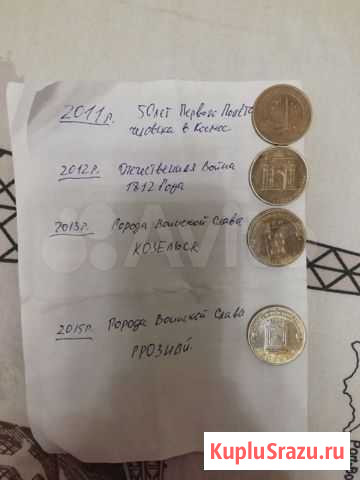 2011г. 50лет Первого Полёта
человека в Космос
2012г. Отечественная Война
1812 Года
2013г. Города Воинской Слава
КОЗЕЛЬСК
Avito
2015г. Города Воинской Слава
ГРОЗНЫЙ.
KupluSrazu.ru